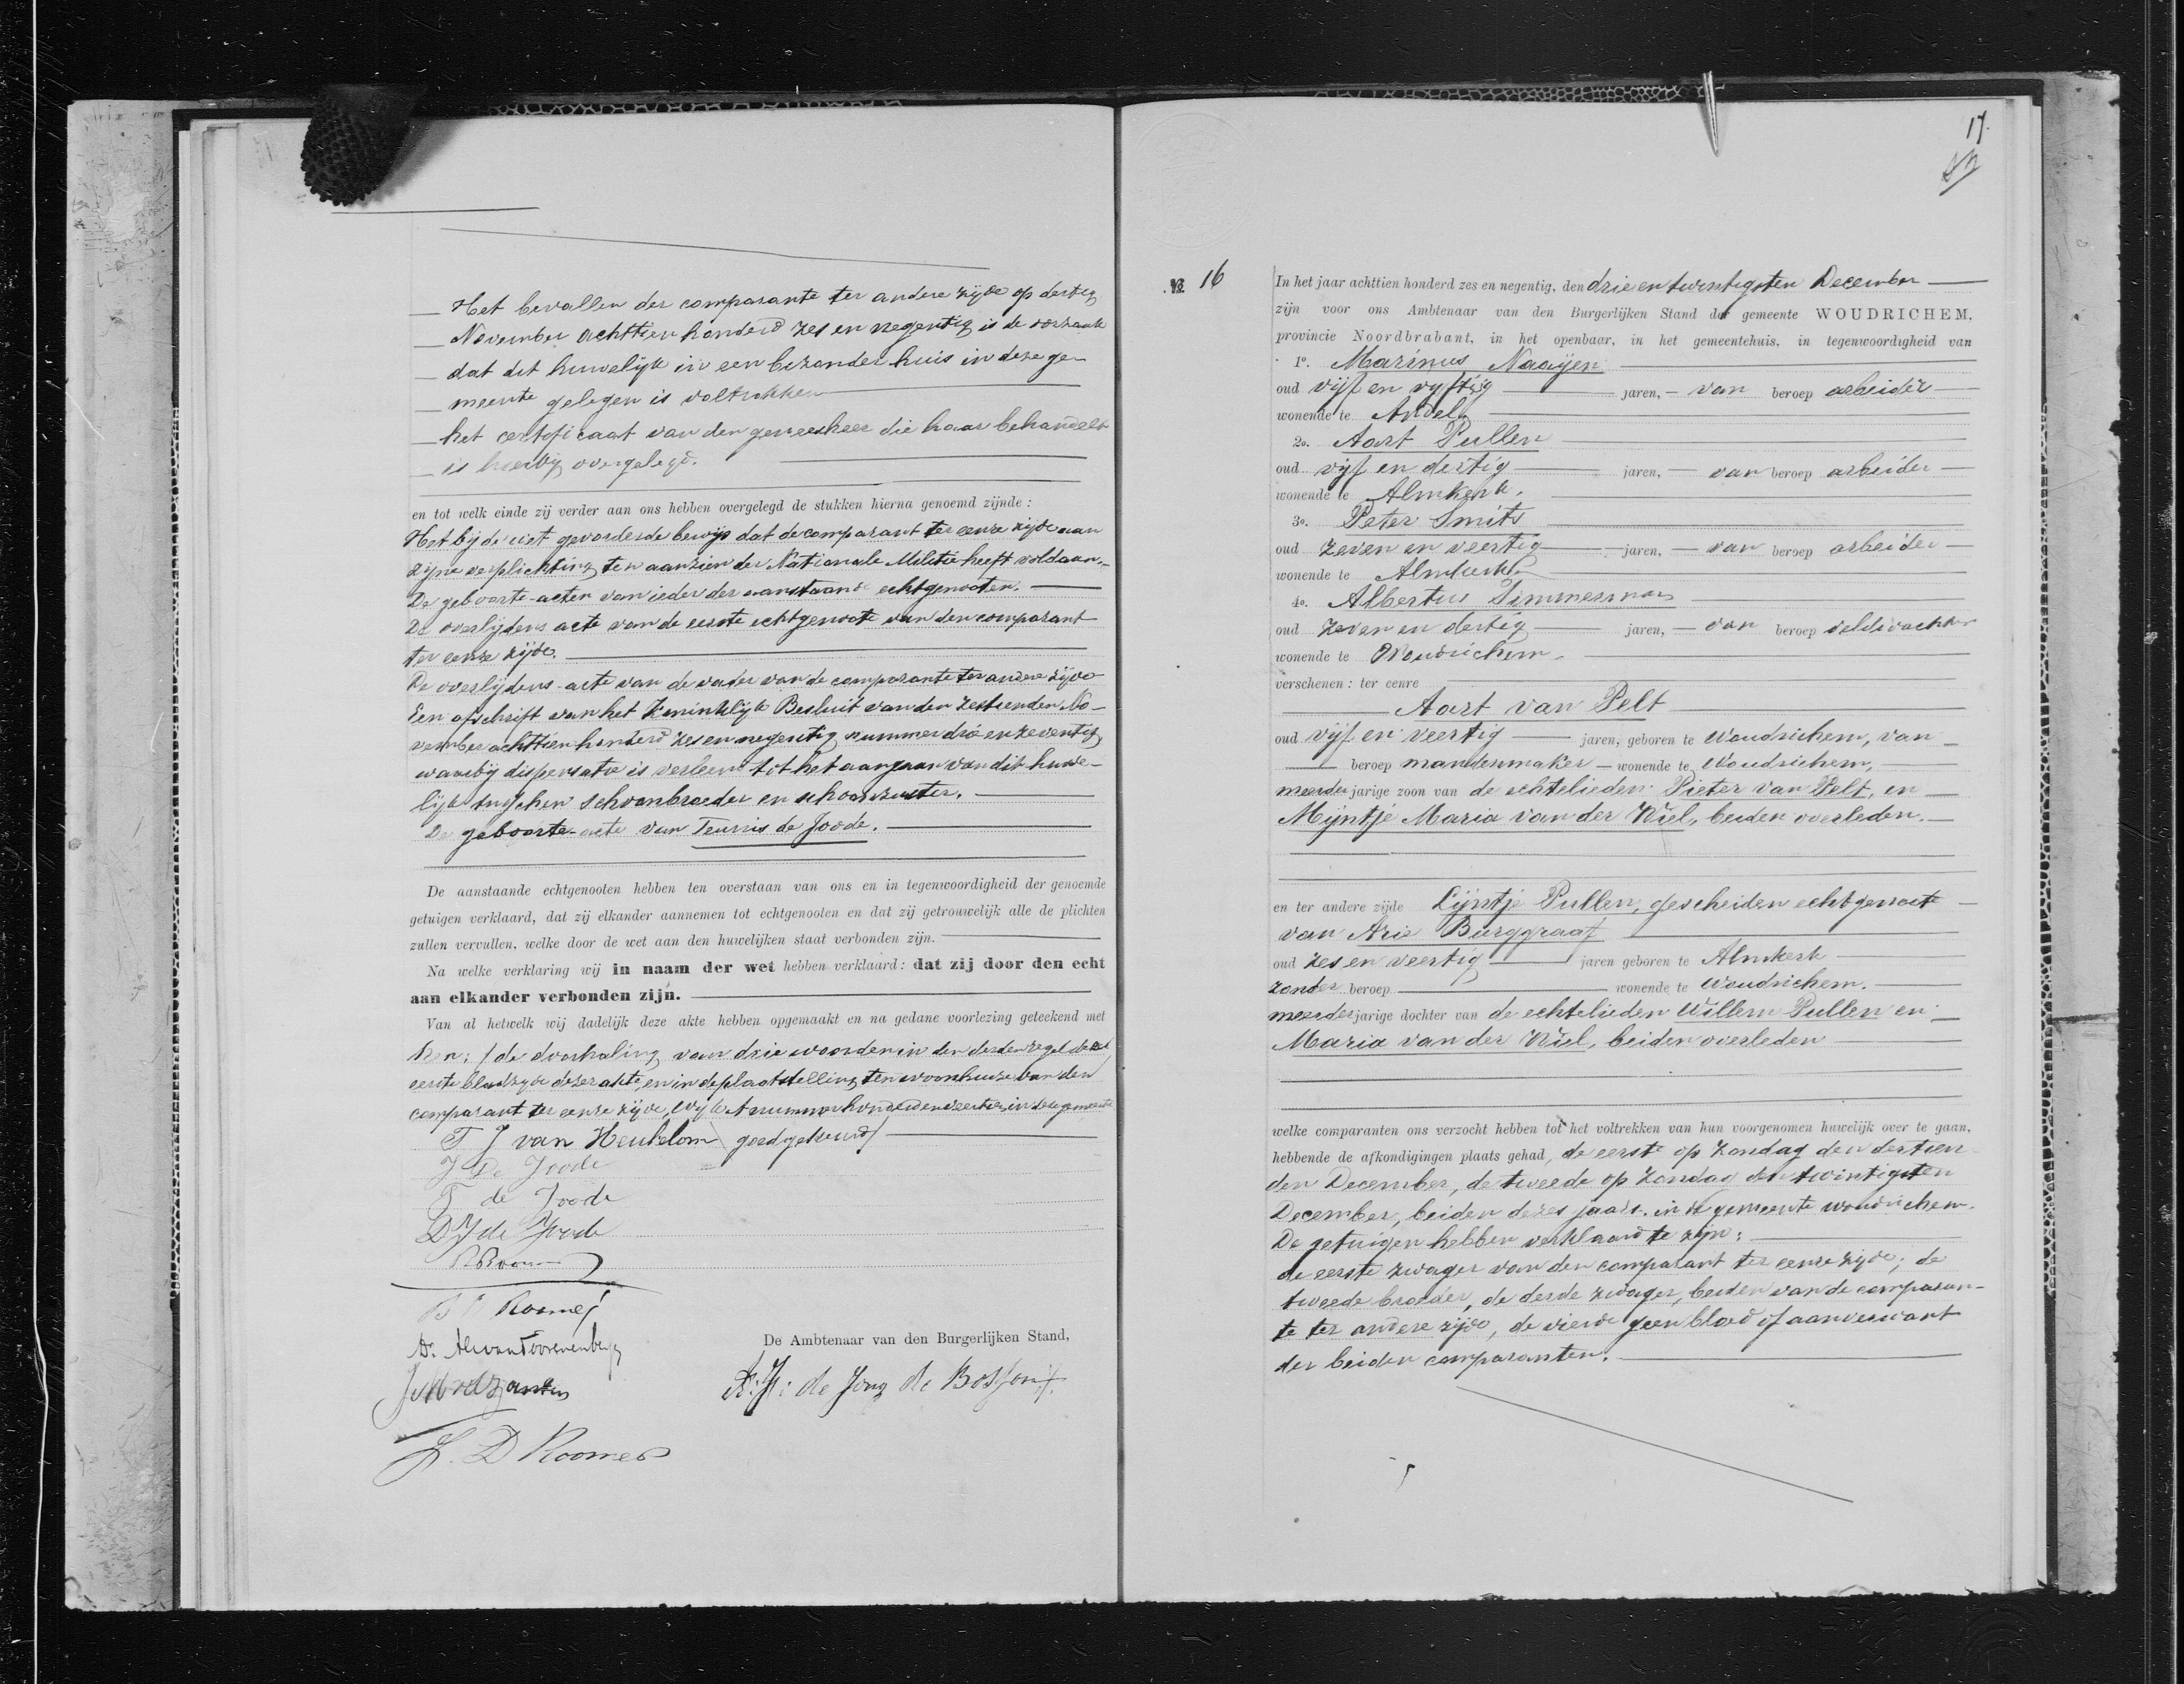 Het bevallen der comparante ter andere zijde op dertig
November achttien honderd zes en negentig is de oorzaak
dat dit huwelijk in een bezonder huis in deze ge-
meente gelegen is voltrokken
het certificaat van den geneesheer die haar behandelt
is hierbij overgelegd.
en tot welk einde zij verder aan ons hebben overgelegd de stukken hierna genoemd zijnde:
Het bij de wet gevorderde bewijs dat de comparant ter eenre zijde aan
zijne verplichting ten aanzien der Nationale Militie heeft voldaan.
De geboorte-acten van ieder der aanstaande echtgenooten.
De overlijdens acte van de eerste echtgenoote van den comparant
ter eenre zijde.
De overlijdens-acte van de vader van de comparante ter andere zijde
Een afschrift van het Koninklijk Besluit van den zestienden No-
vember achttien honderd zes en negentig nummer drie en zeventig
waarbij dispensatie is verleend tot het aangaan van dit huwe-
lijk tusschen schoonbroeder en schoonzuster.
De geboorte-acte van Teunis de Joode.
De aanstaande echtgenooten hebben ten overstaan van ons en in tegenwoordigheid der genoemde
getuigen verklaard, dat zij elkander aannemen tot echtgenooten en dat zij getrouwelijk alle de plichten
zullen vervullen, welke door de wet aan den huwelijken staat verbonden zijn.
Na welke verklaring wij in naam der wet hebben verklaard: dat zij door den echt
aan elkander verbonden zijn.
Van al hetwelk wij dadelijk deze akte hebben opgemaakt en na gedane voorlezing geteekend met
hen; / de doorhaling van drie woorden in den derden regel der
eerste bladzijde dezer akte, en in de plaatstelling ten woonhuize van den
comparant ter eenre zijde, wijk A nummer honderd en veertien in deze gemeente
T J van Heukelom goedgekeurd/
J De Joode
T de Joode
D J de Joode
Roomer
De Ambtenaar van den Burgerlijken Stand,
A: H: de Jong de Bosson
J. D Roomer
17.
No. 16
In het jaar achttien honderd zes en negentig, den drie en twintigsten December
zijn voor ons Ambtenaar van den Burgerlijken Stand der gemeente WOUDRICHEM,
provincie Noordbrabant, in het openbaar, in het gemeentehuis, in tegenwoordigheid van
1o. Marinus Naaijen
oud vijf en vijftig jaren, van beroep arbeider
wonende te Andel
2o. Aart Pullen
oud vijf en dertig jaren, van beroep arbeider
wonende te Almkerk.
3o. Peter Smits
oud zeven en veertig jaren, van beroep arbeider
wonende te Almkerk
4o. Albertus Timmerman
oud zeven en dertig jaren, van beroep veldwachter
wonende te Woudrichem.
verschenen: ter eenre
Aart van Pelt
oud vijf en veertig jaren, geboren te Woudrichem, van
beroep mandenmaker wonende te Woudrichem,
meerderjarige zoon van de echtelieden Pieter van Pelt, en
Mijntje Maria van der Wiel, beiden overleden.
en ter andere zijde Lijntje Pullen, gescheiden echtgenoote
van Arie Burggraaf
oud zes en veertig jaren geboren te Almkerk
zonder beroep wonende te Woudrichem.
meerderjarige dochter van de echtelieden Willem Pullen en
Maria van der Wiel, beiden overleden
welke comparanten ons verzocht hebben tot het voltrekken van hun voorgenomen huwelijk over te gaan,
hebbende de afkondigingen plaats gehad, de eerste op Zondag den dertien
den December, de tweede op Zondag den twintigsten
December, beiden dezes jaars. in de gemeente woudrichem.
De getuigen hebben verklaard te zijn:
de eerste zwager van den comparant ter eenre zijde; de
tweede broeder, de derde zwager, beiden van de comparan-
te ter andere zijde, de vierde geen bloed of aanverwant
der beiden comparanten.